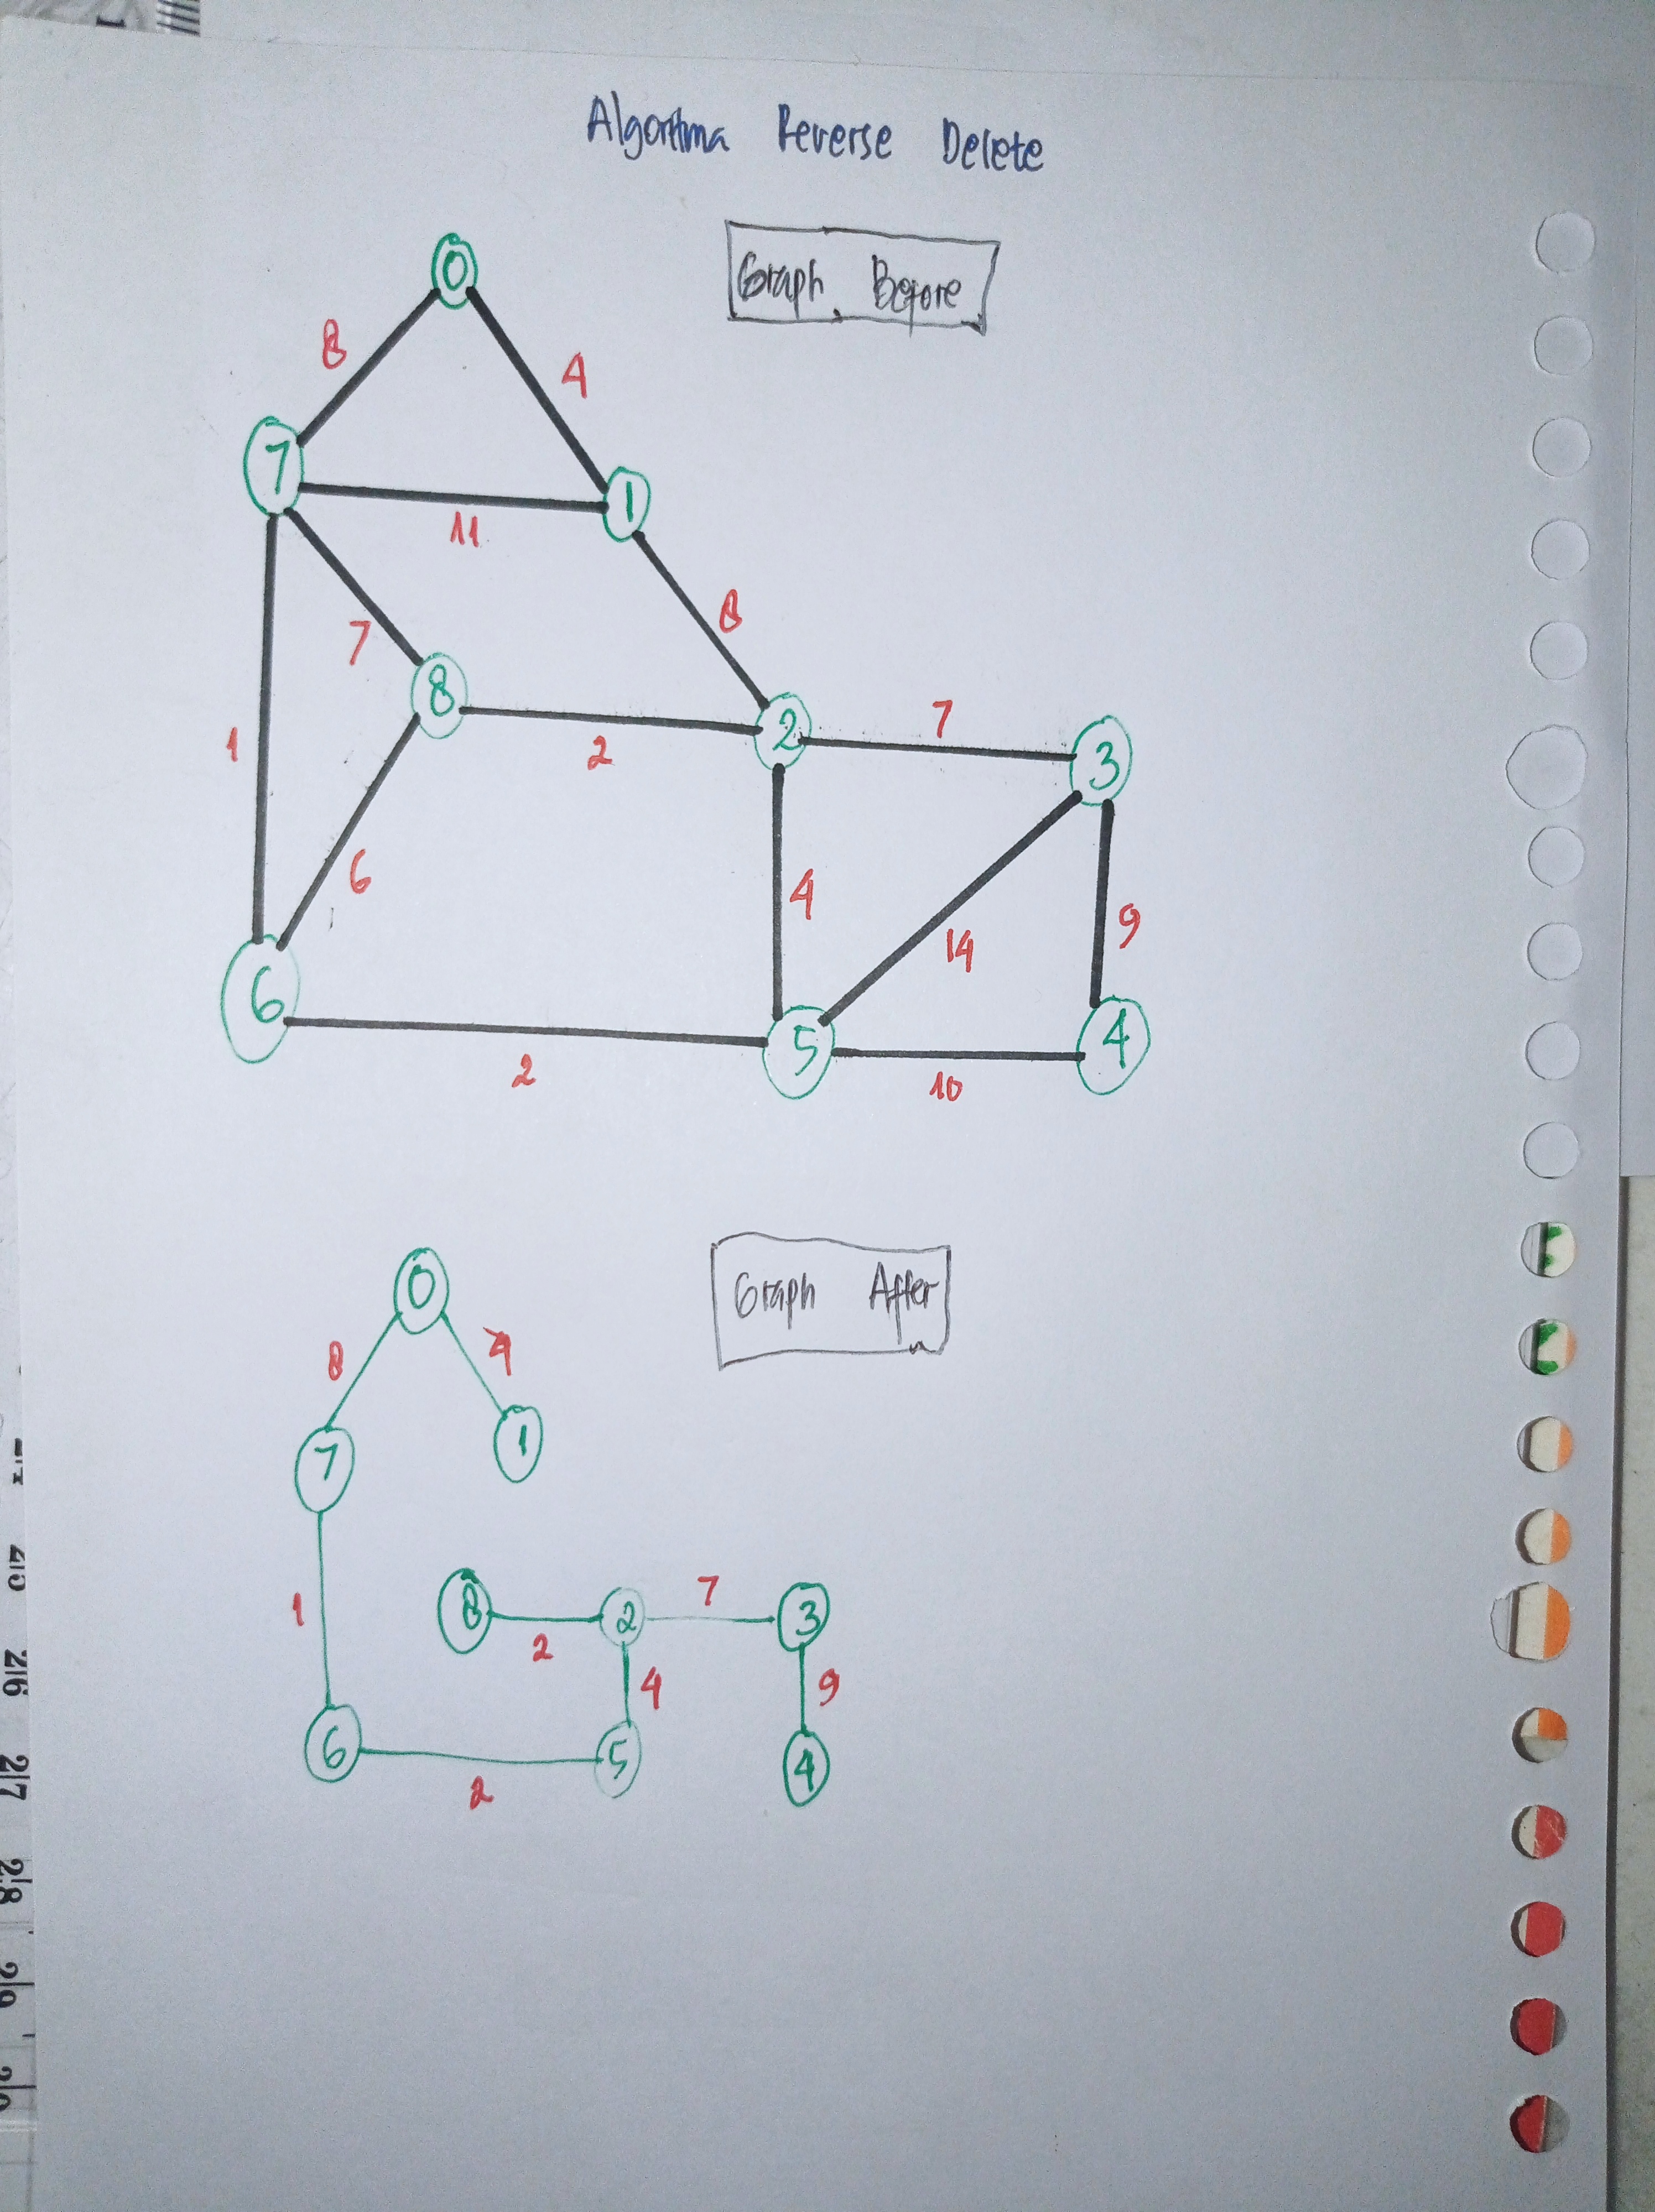 Algoritma Reverse Delete
Graph Before
0
8
4
7
1
11
8
7
8
2
7
3
1
2
6
4
14
9
6
5
4
2
10
Graph After
0
8
4
7
1
1
8
2
7
3
2
4
9
6
5
4
2
26
27
28
29